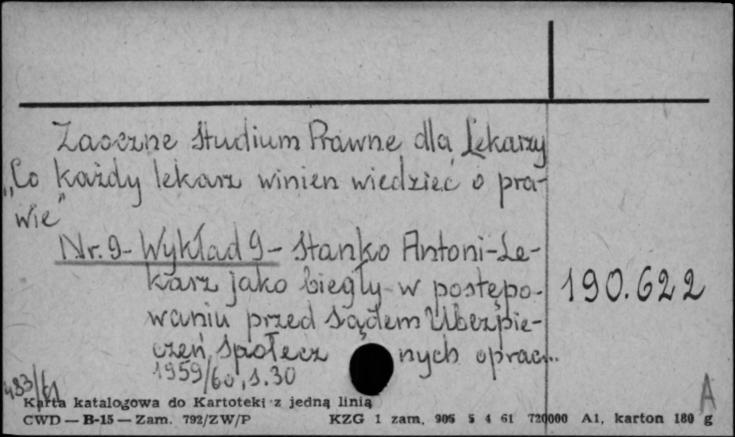 Zaoczne Studium Prawne dla Lekarzy
„Co każdy lekarz winien wiedzieć o pra-
wie"
Nr. 9 - Wykład 9 - Stanko Antoni - Le-
karz jako biegły w postępo-
waniu przed Sądem Ubezpie-
czeń Społecz nych oprac...
1959/60, s. 30
190.622
483/61
A
Karta katalogowa do Kartoteki z jedną linią
CWD — B-15 — Zam. 792/ZW/P KZG 1 zam, 905 5 4 61 720000 A1, karton 180 g